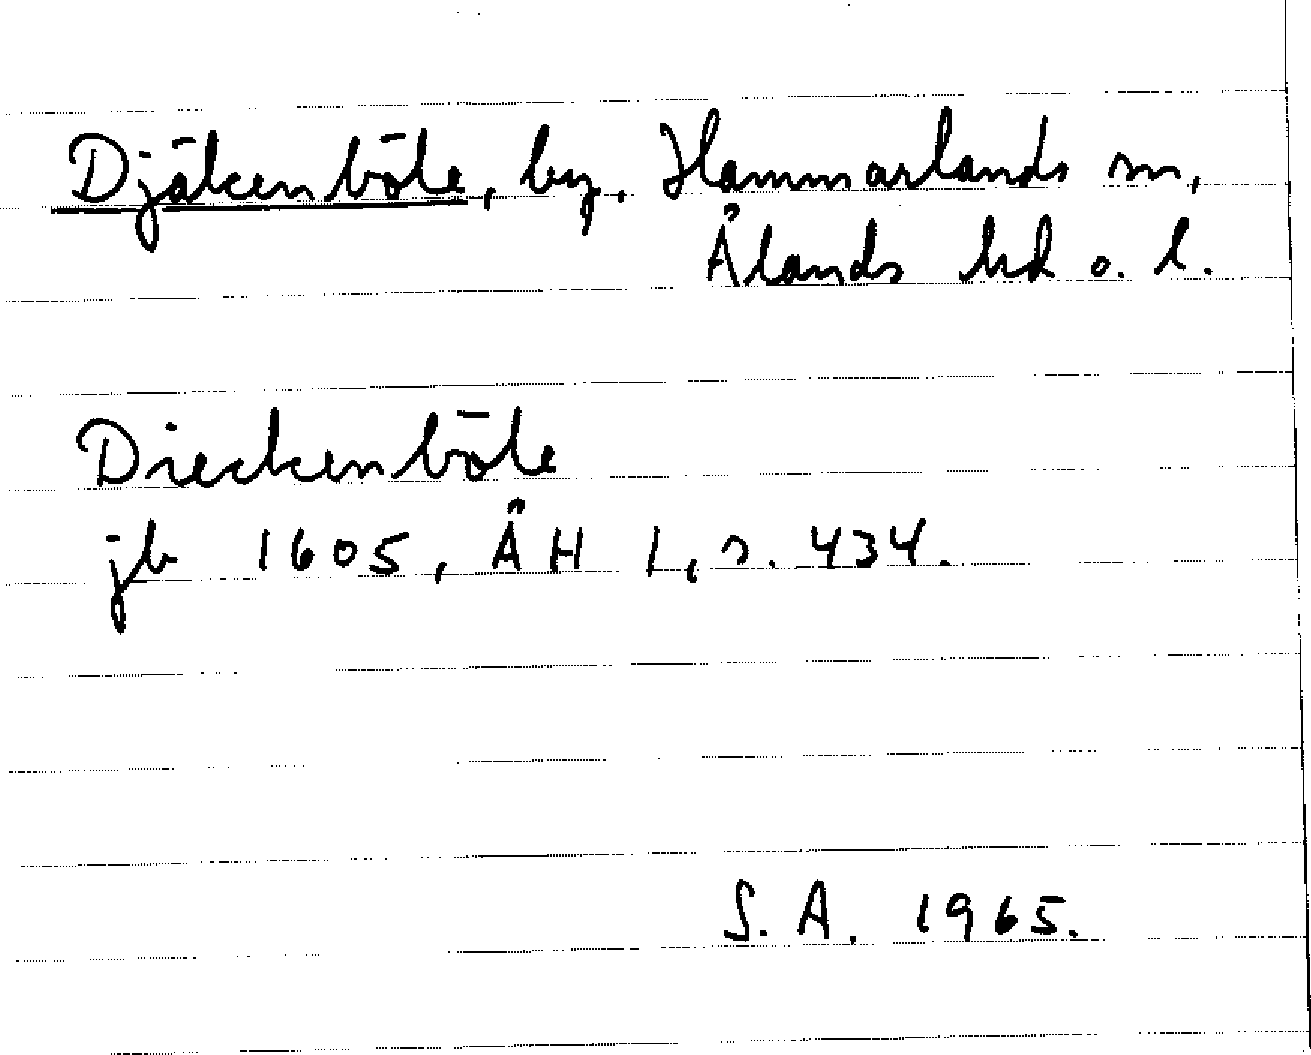 Djäkenböle, by, Hammarlands sn,
Ålands hd o. l.
Dieckenböle
jb 1605, ÅH I, s. 434.
S. A. 1965.